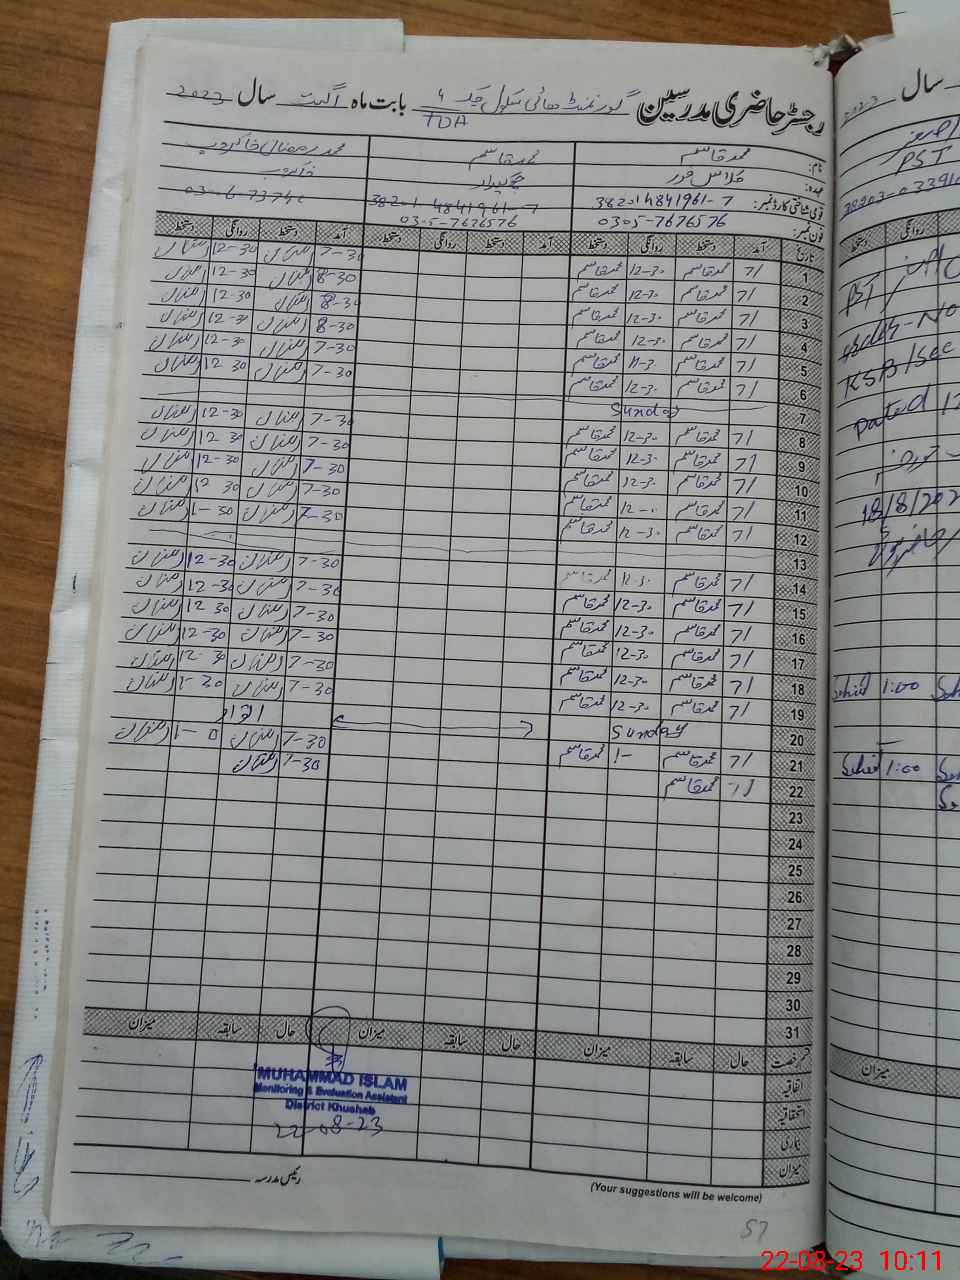 رجسٹر حاضری مدرسین گورنمنٹ ہائی سکول چک 4 TDA بابت ماہ اگست سال 2023
نام: محمد قاسم محمد قاسم محمد رمضان خاکروب
عہدہ: چوکیدار خاکروب
قومی شناختی کارڈ نمبر: 38201-4841961-7 38201-4841961-7
فون نمبر: 0305-7676576 0305-7676576
تاریخ آمد دستخط روانگی دستخط آمد دستخط روانگی دستخط آمد دستخط روانگی دستخط
1 7/ محمد قاسم 12-30 محمد قاسم 7-30 رمضان 12-30 رمضان
2 7/ محمد قاسم 12-30 محمد قاسم 8-30 رمضان 12-30 رمضان
3 7/ محمد قاسم 12-30 محمد قاسم 8-30 رمضان 12-30 رمضان
4 7/ محمد قاسم 12-30 محمد قاسم 8-30 رمضان 12-30 رمضان
5 7/ محمد قاسم 11-30 محمد قاسم 7-30 رمضان 12-30 رمضان
6 7/ محمد قاسم 12-30 محمد قاسم 7-30 رمضان 12 30 رمضان
7 Sunday
8 7/ محمد قاسم 12-30 محمد قاسم 7-30 رمضان 12-30 رمضان
9 7/ محمد قاسم 12-30 محمد قاسم 7-30 رمضان 12 30 رمضان
10 7/ محمد قاسم 12-30 محمد قاسم 7-30 رمضان 12-30 رمضان
11 7/ محمد قاسم 12- محمد قاسم 7-30 رمضان 12 30 رمضان
12 7/ محمد قاسم 12-30 محمد قاسم 7-30 رمضان 1-30 رمضان
13
14 7/ محمد قاسم 12-30 محمد قاسم 7-30 رمضان 12-30 رمضان
15 7/ محمد قاسم 12-30 محمد قاسم 7-30 رمضان 12-30 رمضان
16 7/ محمد قاسم 12-30 محمد قاسم 7-30 رمضان 12 30 رمضان
17 7/ محمد قاسم 12-30 محمد قاسم 7-30 رمضان 12-30 رمضان
18 7/ محمد قاسم 12-30 محمد قاسم 7-30 رمضان 12-30 رمضان
19 7/ محمد قاسم 12-30 محمد قاسم 7-30 رمضان 1-30 رمضان
20 Sunday اتوار
21 7/ محمد قاسم 1- محمد قاسم 7-30 رمضان 1-0 رمضان
22 7/ محمد قاسم 7-30 رمضان
23
24
25
26
27
28
29
30
31
رخصت حال سابقہ میزان حال سابقہ میزان حال سابقہ میزان
اتفاقیہ
استحقاقیہ
بیماری
میزان
MUHAMMAD ISLAM
Monitoring & Evaluation Assistant
District Khushab
22-08-23
رئیس مدرسہ
(Your suggestions will be welcome)
57
سال 2023
PST
دستخط روانگی
PST
Dated
18/8/202
1:00
1:00
میزان
22-08-23 10:11